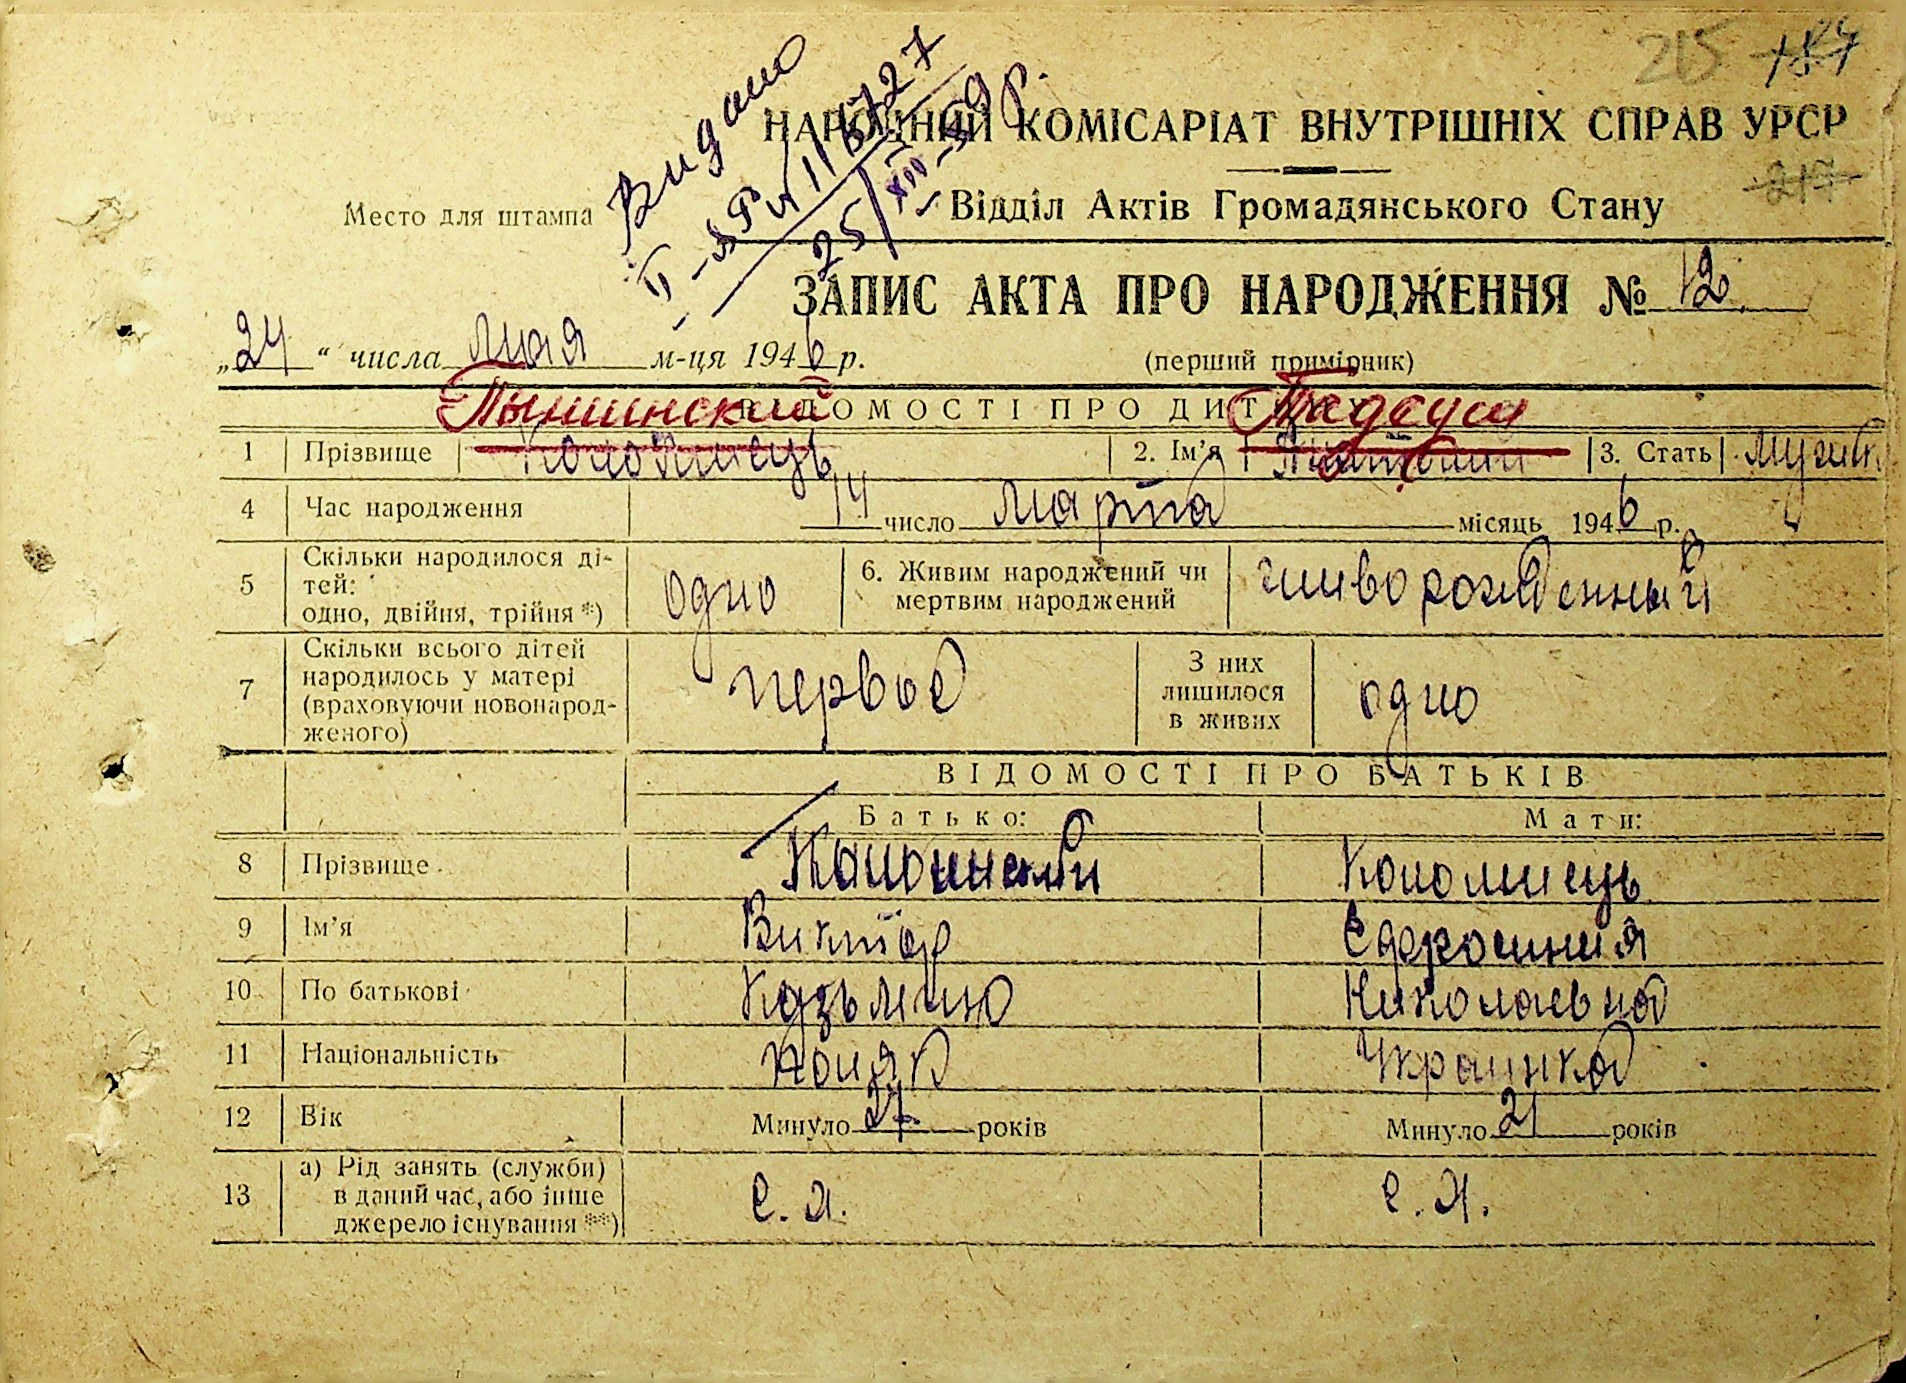 215 187
217
Видано
II-ЯР № 116727
25/XII-59 р.
НАРОДНИЙ КОМІСАРІАТ ВНУТРІШНІХ СПРАВ УРСР
Место для штампа
Відділ Актів Громадянського Стану
ЗАПИС АКТА ПРО НАРОДЖЕННЯ № 12
„24“ числа мая м-ця 1946 р. (перший примірник)
ВІДОМОСТІ ПРО ДИТИНУ
Тадеуш
1 Прізвище Коломиець 2. Ім'я 3. Стать мужск.
4 Час народження 14 число марта місяць 1946 р.
5 Скільки народилося дітей: одно, двійня, трійня *) одно 6. Живим народжений чи мертвим народжений живорожденный
7 Скільки всього дітей народилось у матері (враховуючи новонародженого) первое З них лишилося в живих одно
ВІДОМОСТІ ПРО БАТЬКІВ
Батько: Мати:
8 Прізвище Коломиець
9 Ім'я Виктор Ефросиния
10 По батькові Казьмино Николаевна
11 Національність Поляк Украинка
12 Вік Минуло 27 років Минуло 21 років
13 а) Рід занять (служби) в даний час, або інше джерело існування **) с. х. с. х.